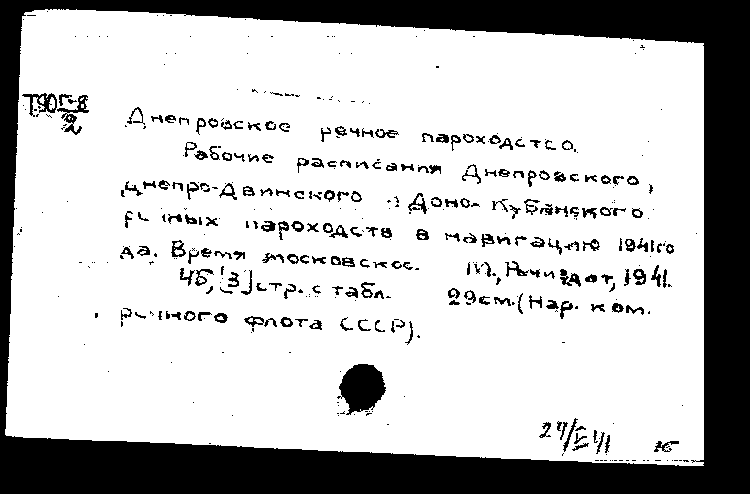 Т90 Г-8
2
Днепровское речное пароходство.
Рабочие расписания Днепровского,
Днепро-Двинского и Доно-Кубанского
речных пароходств в навигацию 1941 го
да. Время московское. М., Речиздат, 1941.
45, [3] стр. с табл. 29 см. (Нар. ком.
речного флота СССР).